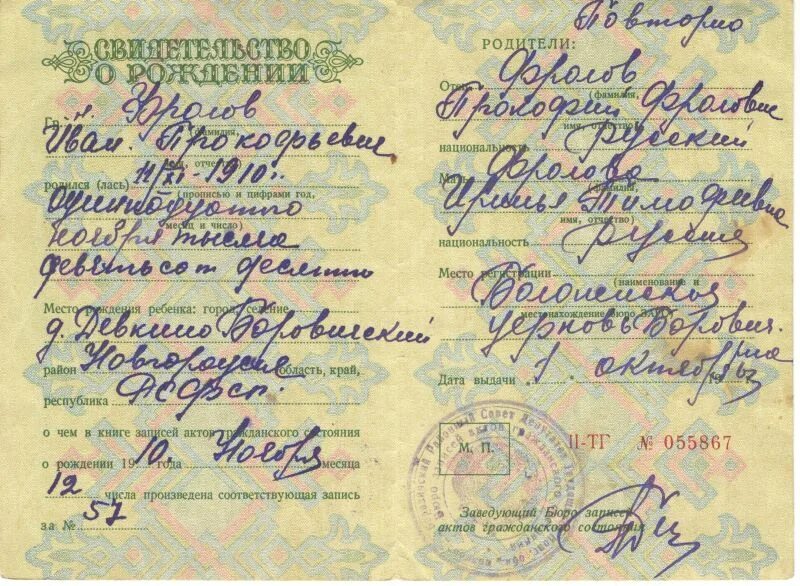 СВИДЕТЕЛЬСТВО
О РОЖДЕНИИ
Гр. н. Фролов
(фамилия,
Иван. Прокофьевич
имя, отчество)
родился (лась) 11/XI-1910г.
(прописью и цифрами год,
одиннадцатого
месяц и число)
ноября тысяча
девятьсот десятого
Место рождения ребенка: город, селение
д. Девкино Боровичский
район Новгородская область, край,
республика РСФСР.
о чем в книге записей актов гражданского состояния
о рождении 19 10. года Ноября месяца
12 числа произведена соответствующая запись
за № 57
Повторно
РОДИТЕЛИ:
Отец Фролов
(фамилия,
Прокофий Фролович
имя, отчество)
национальность Русский
Мать Фролова
(фамилия,
Иринья Тимофеевна
имя, отчество)
национальность Русская
Место регистрации
(наименование и
местонахождение Бюро ЗАГС)
церковь Борович.
Дата выдачи „1" октября 19
М. П.
II-ТГ № 055867
Заведующий Бюро записей
актов гражданского состояния